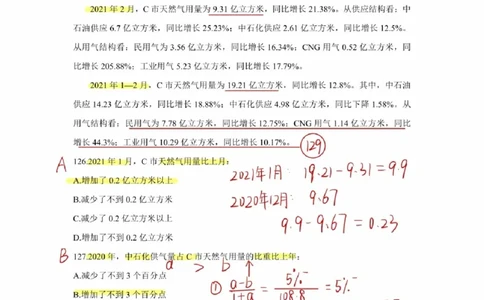 2021 年 2 月，C 市天然气用量为 9.31 亿立方米，同比增长 21.38%。从供应结构看：中
石油供应 6.7 亿立方米，同比增长 25.23%；中石化供应 2.61 亿立方米，同比增长 12.5%。
从用气结构看：民用气为 3.56 亿立方米，同比增长 16.34%；CNG 用气 0.52 亿立方米，同
比增长 205.88%；工业用气 5.23 亿立方米，同比增长 17.79%。
2021 年 1—2 月，C 市天然气用量为 19.21 亿立方米，同比增长 12.8%。其中，中石油
供应 14.23 亿立方米，同比增长 18.88%；中石化供应 4.98 亿立方米，同比下降 1.58%。从
用气结构看：民用气为 7.78 亿立方米，同比增长 12.75%；CNG 用气 1.14 亿立方米，同比
增长 44.3%；工业用气 10.29 亿立方米，同比增长 10.17%。
129
A 126.2021 年 1 月，C 市天然气用量比上月：
A.增加了 0.2 亿立方米以上
B.减少了不到 0.2 亿立方米
C.减少了 0.2 亿立方米以上
D.增加了不到 0.2 亿立方米
2021年1月：19.21-9.31=9.9
2020年12月：9.67
9.9-9.67=0.23
B 127.2020 年，中石化供气量占 C 市天然气用量的比重比上年：
a > b ↑
A.减少了不到 3 个百分点
B.增加了不到 3 个百分点
① a-b
1+a
= 5%-
108.8
= 5%-